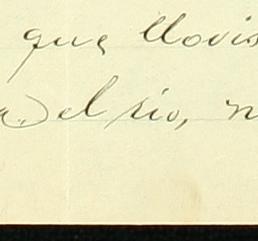 que llovis
a. el rio, n